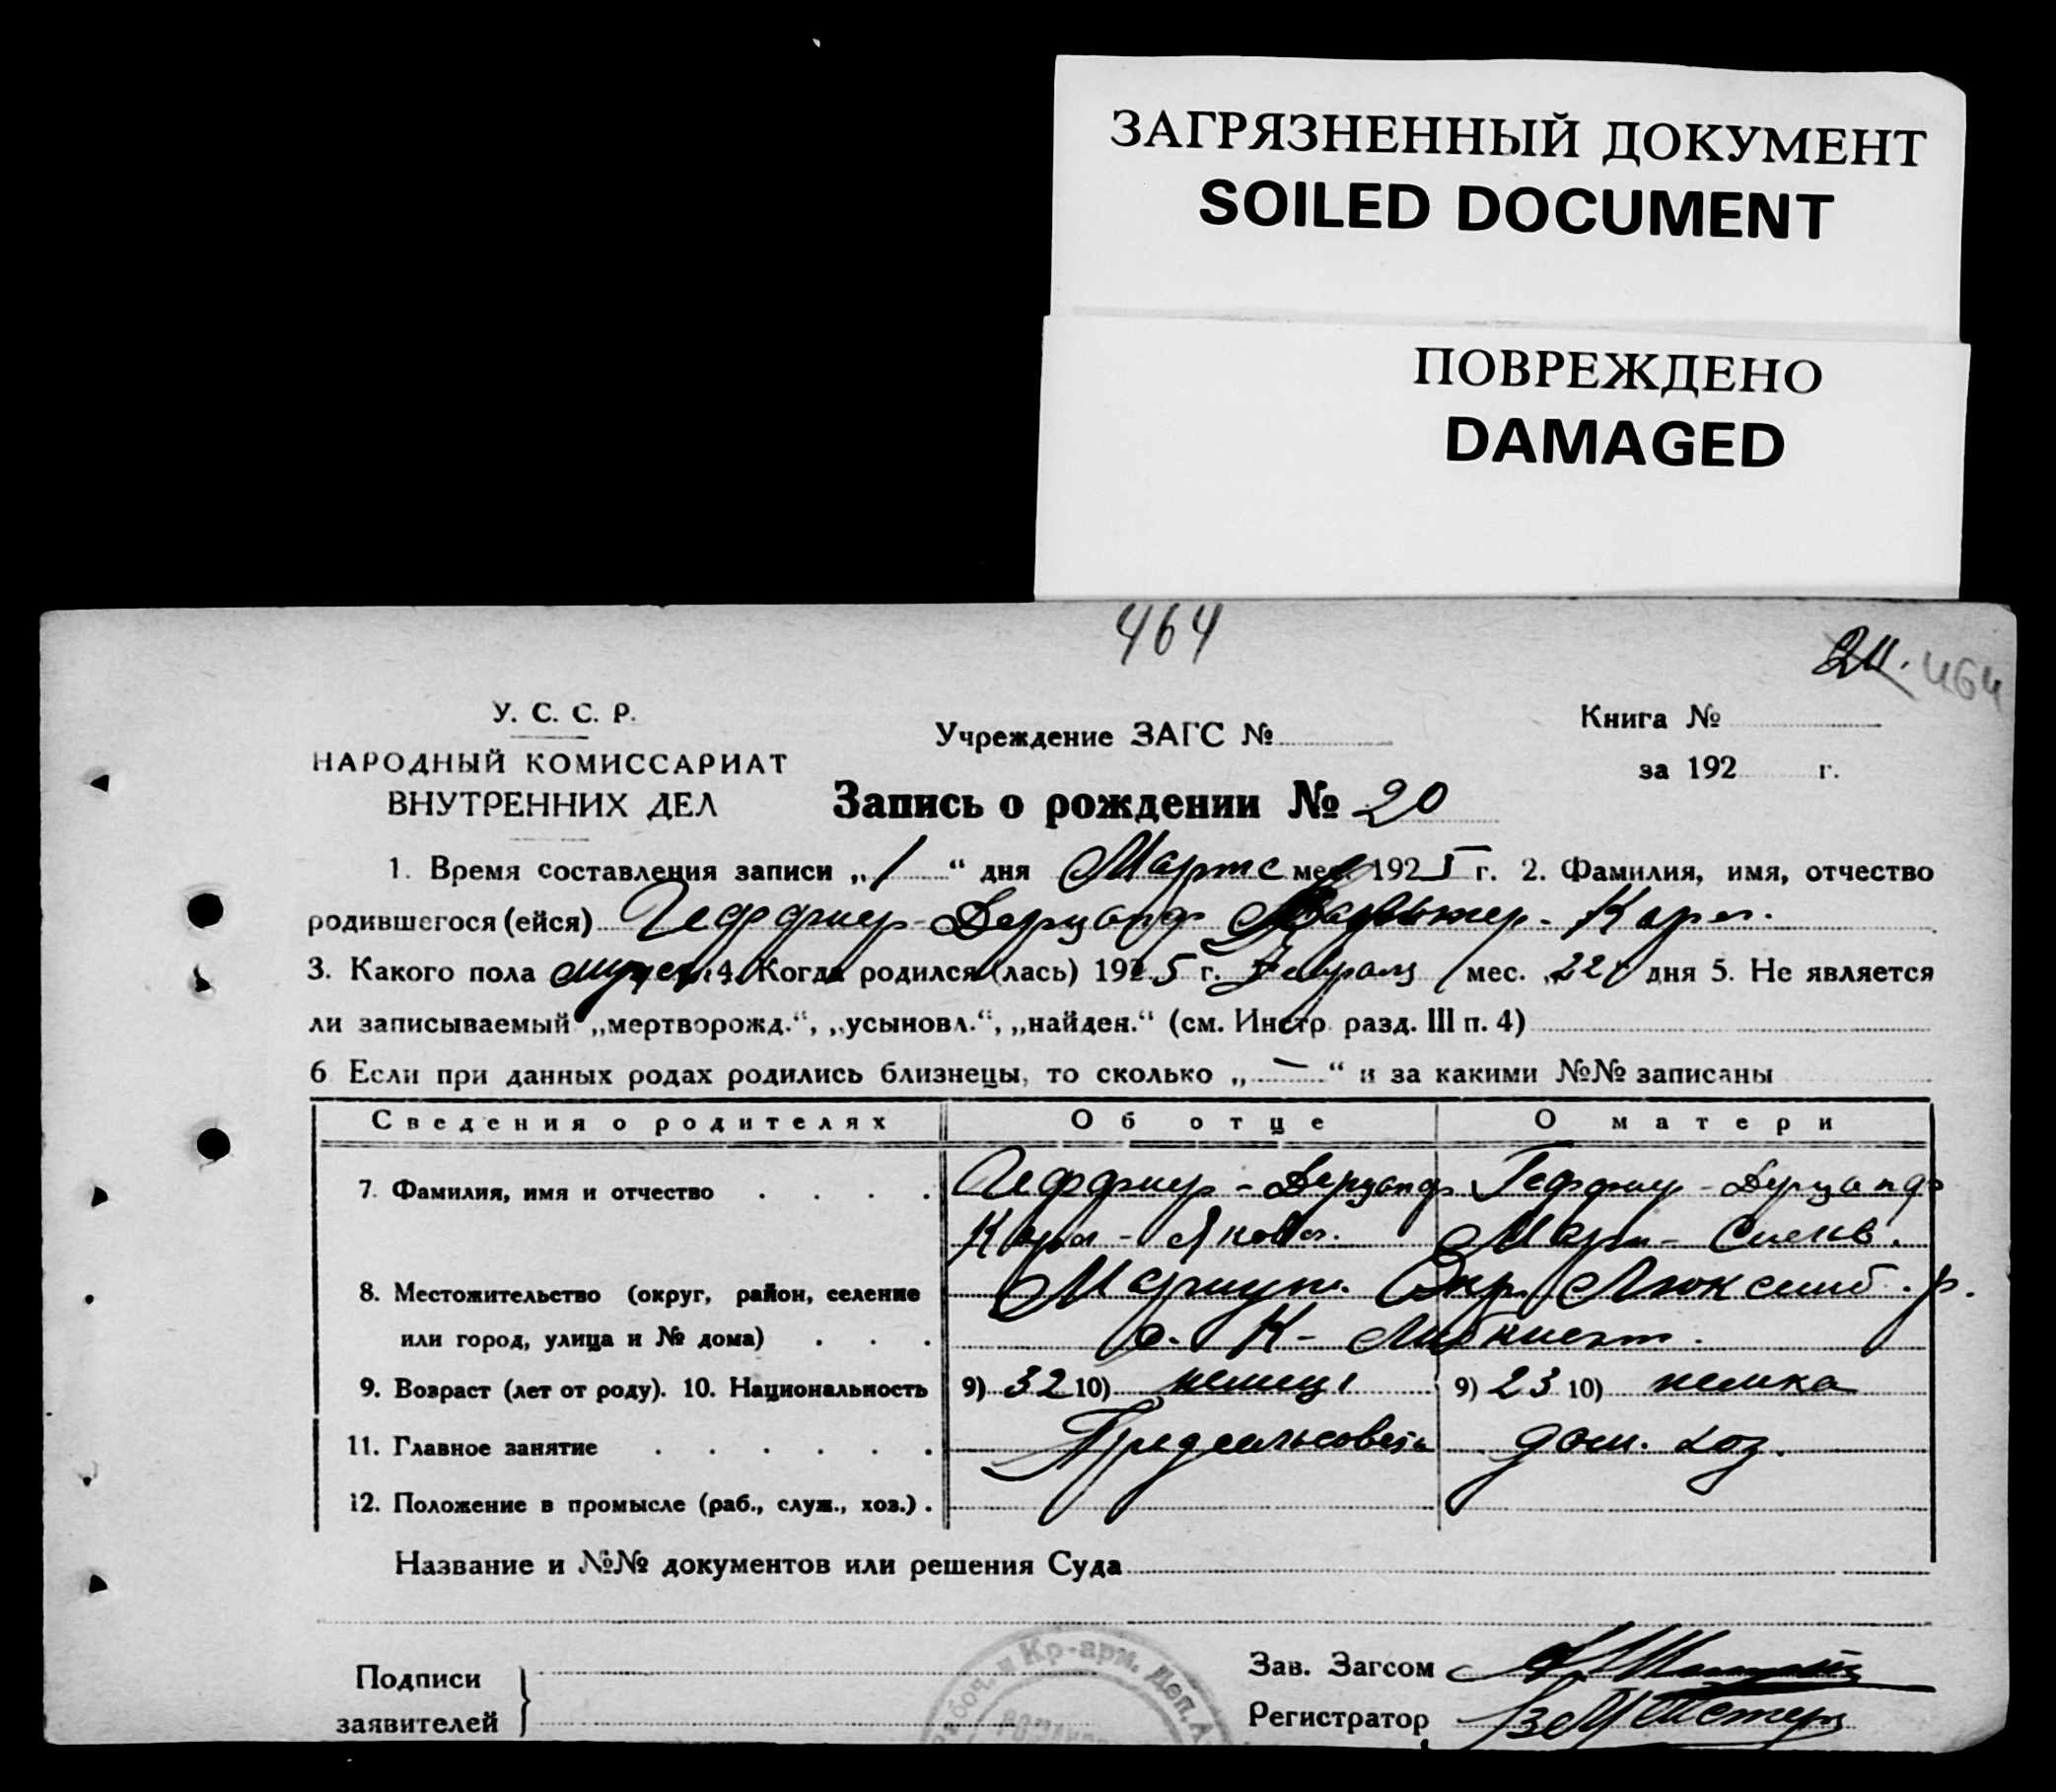 ЗАГРЯЗНЕННЫЙ ДОКУМЕНТ
SOILED DOCUMENT
ПОВРЕЖДЕНО
DAMAGED
464
24. 464
У. С. С. Р.
НАРОДНЫЙ КОМИССАРИАТ
ВНУТРЕННИХ ДЕЛ
Учреждение ЗАГС №
Книга №
за 192 г.
Запись о рождении № 20
1. Время составления записи „1“ дня Марта мес. 1925 г. 2. Фамилия, имя, отчество
родившегося (ейся) Геффнер-Дерцапф Вальтер-Карл.
3. Какого пола мужск. 4. Когда родился (лась) 1925 г. Февраля мес. „22“ дня 5. Не является
ли записываемый „мертворожд.“, „усыновл.“, „найден.“ (см. Инстр. разд. III п. 4)
6 Если при данных родах родились близнецы, то сколько „—“ и за какими №№ записаны
Сведения о родителях Об отце О матери
7. Фамилия, имя и отчество Геффнер-Дерцапф Геффнер-Дерцапф
Карл-Яковл. Мари-
8. Местожительство (округ, район, селение Мариуп. Окр. Люксемб. р.
или город, улица и № дома) с. К-Либкнехт.
9. Возраст (лет от роду). 10. Национальность 9) 32 10) немец 9) 23 10) немка
11. Главное занятие Предсельсовета дом. хоз.
12. Положение в промысле (раб., служ., хоз.)
Название и №№ документов или решения Суда
Подписи
заявителей
Раboч. и Кр-арм. Деп.
Зав. Загсом
Регистратор